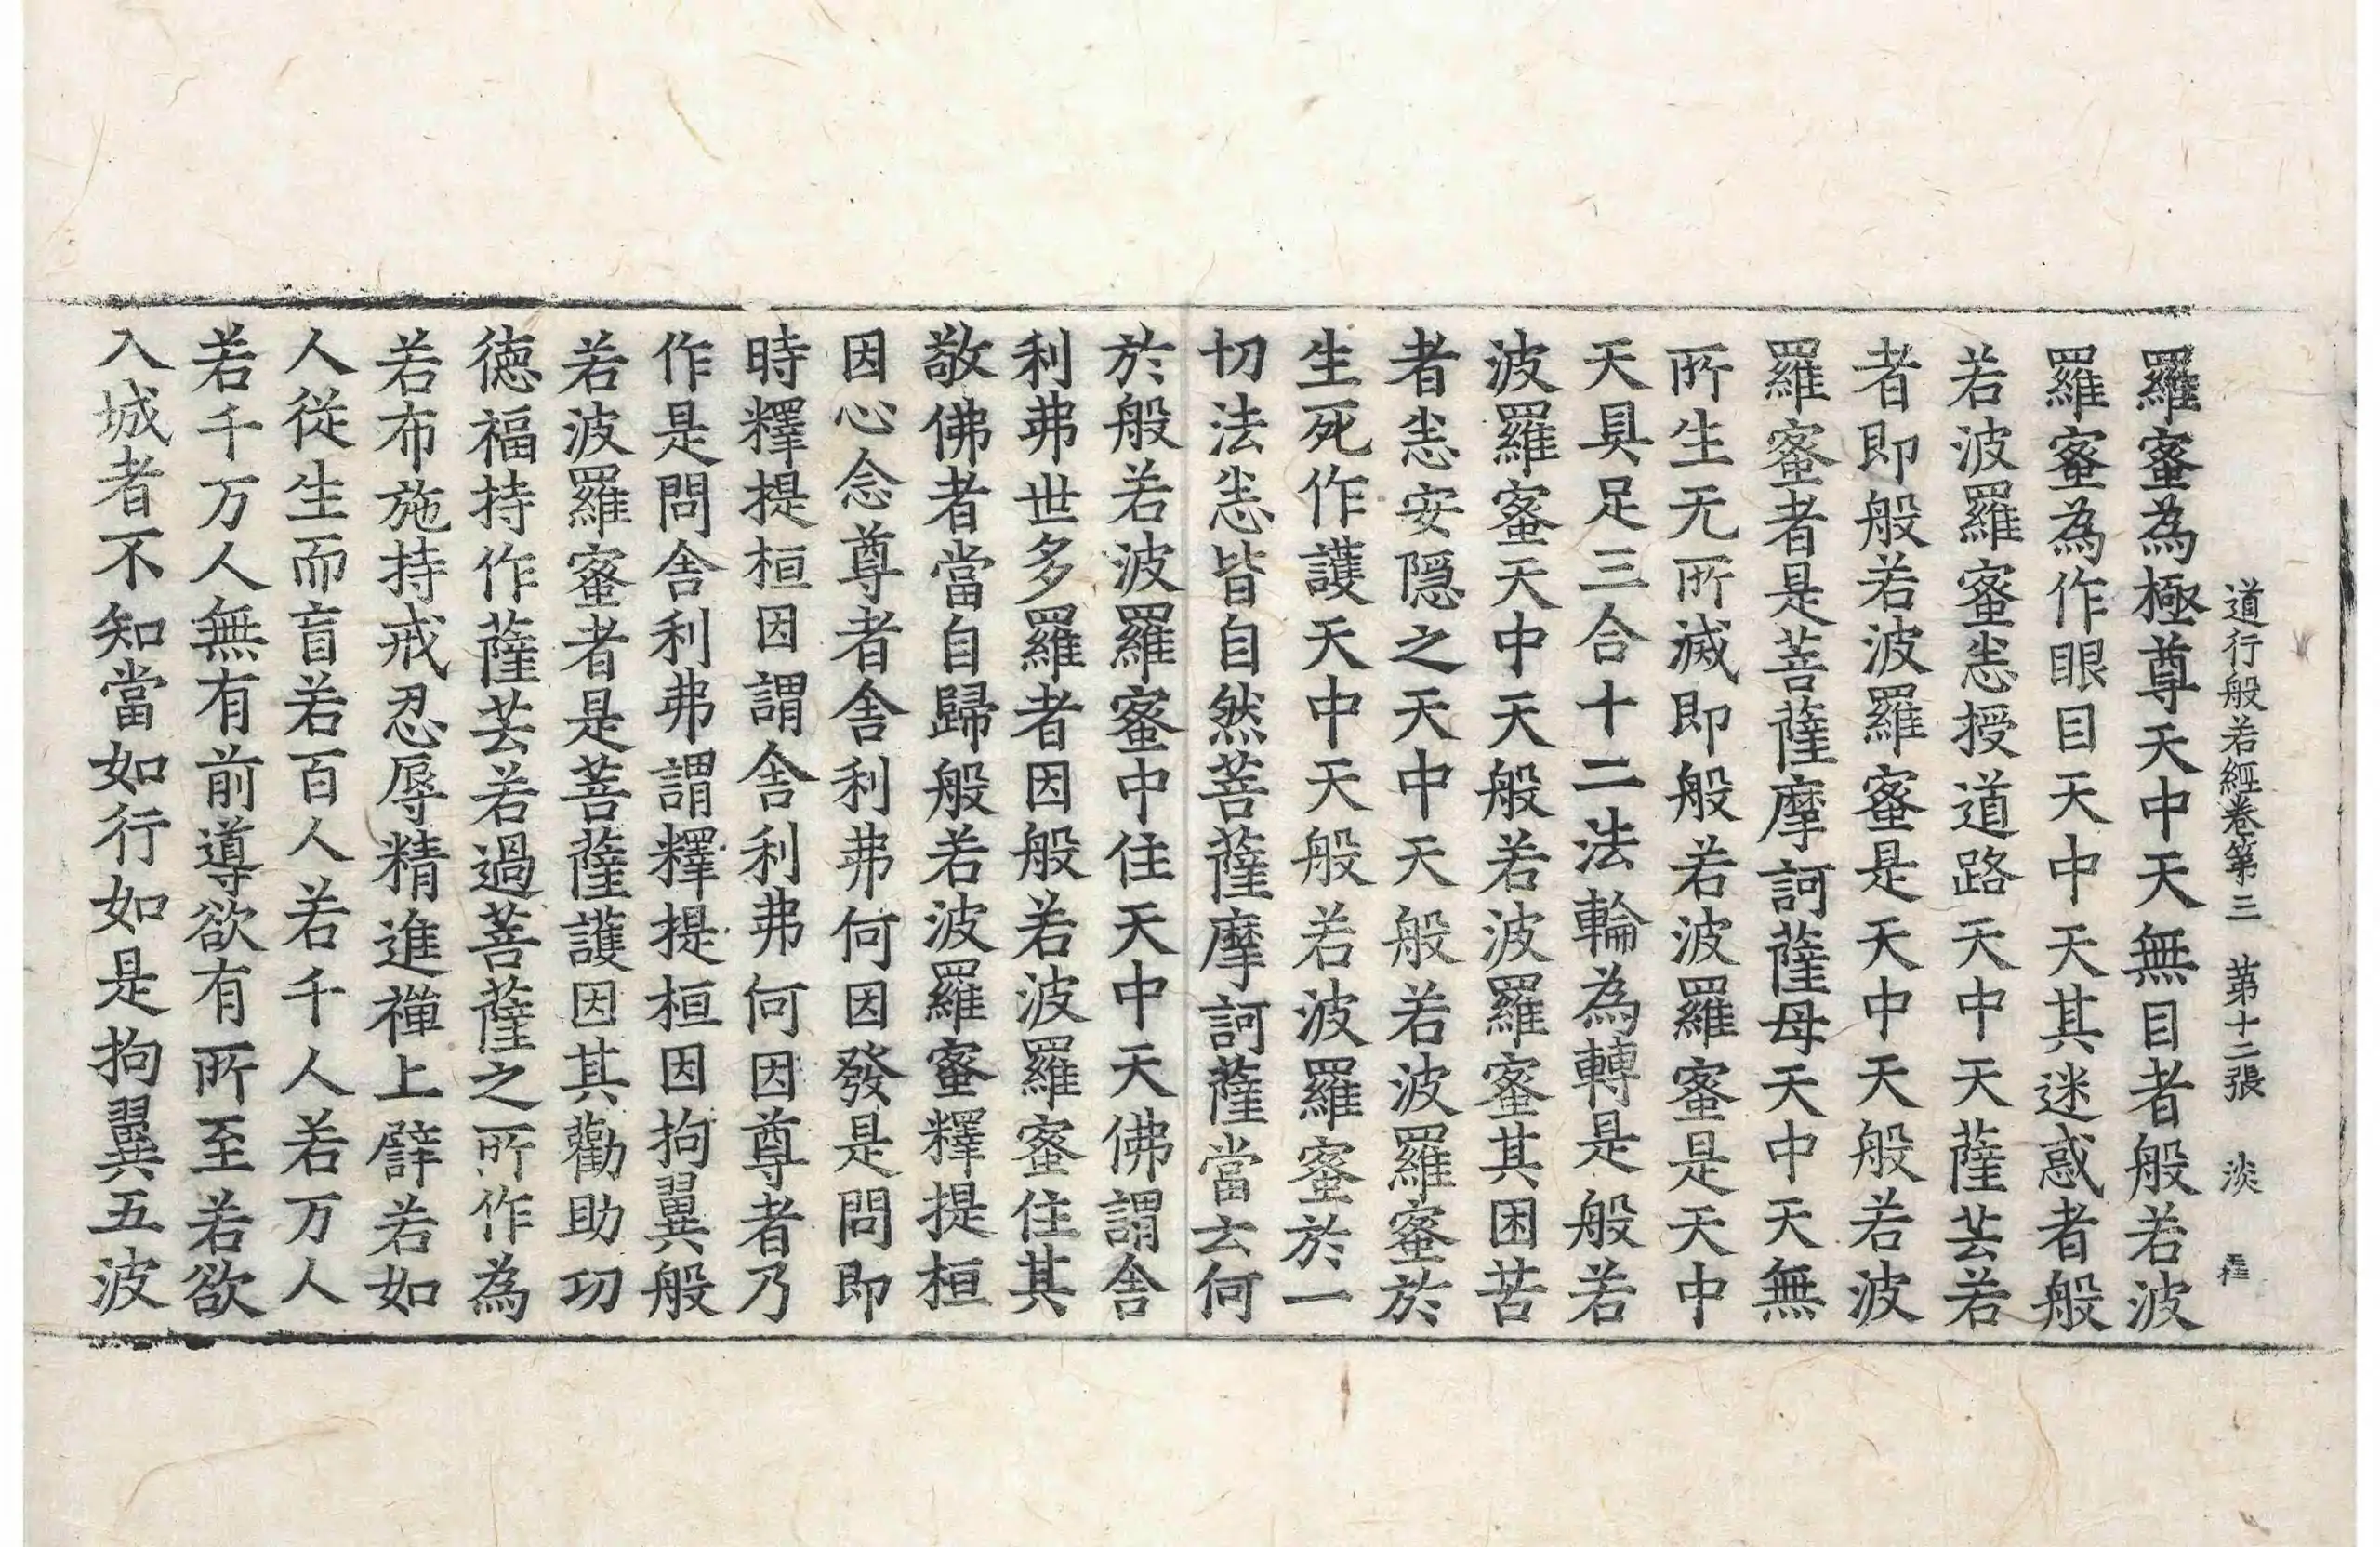 道行般若經卷第三 第十二張 淡
羅蜜為極尊天中天無目者般若波
羅蜜為作眼目天中天其迷惑者般
若波羅蜜悉授道路天中天薩芸若
者即般若波羅蜜是天中天般若波
羅蜜者是菩薩摩訶薩母天中天無
所生无所滅即般若波羅蜜是天中
天具足三合十二法輪為轉是般若
波羅蜜天中天般若波羅蜜其困苦
者悉安隱之天中天般若波羅蜜於
生死作護天中天般若波羅蜜於一
切法悉皆自然菩薩摩訶薩當云何
於般若波羅蜜中住天中天佛謂舍
利弗世多羅者因般若波羅蜜住其
敬佛者當自歸般若波羅蜜釋提桓
因心念尊者舍利弗何因發是問即
時釋提桓因謂舍利弗何因尊者乃
作是問舍利弗謂釋提桓因拘翼般
若波羅蜜者是菩薩護因其勸助功
德福持作薩芸若過菩薩之所作為
若布施持戒忍辱精進禪上譬若如
人從生而盲若百人若千人若万人
若千万人無有前導欲有所至若欲
入城者不知當如行如是拘翼五波